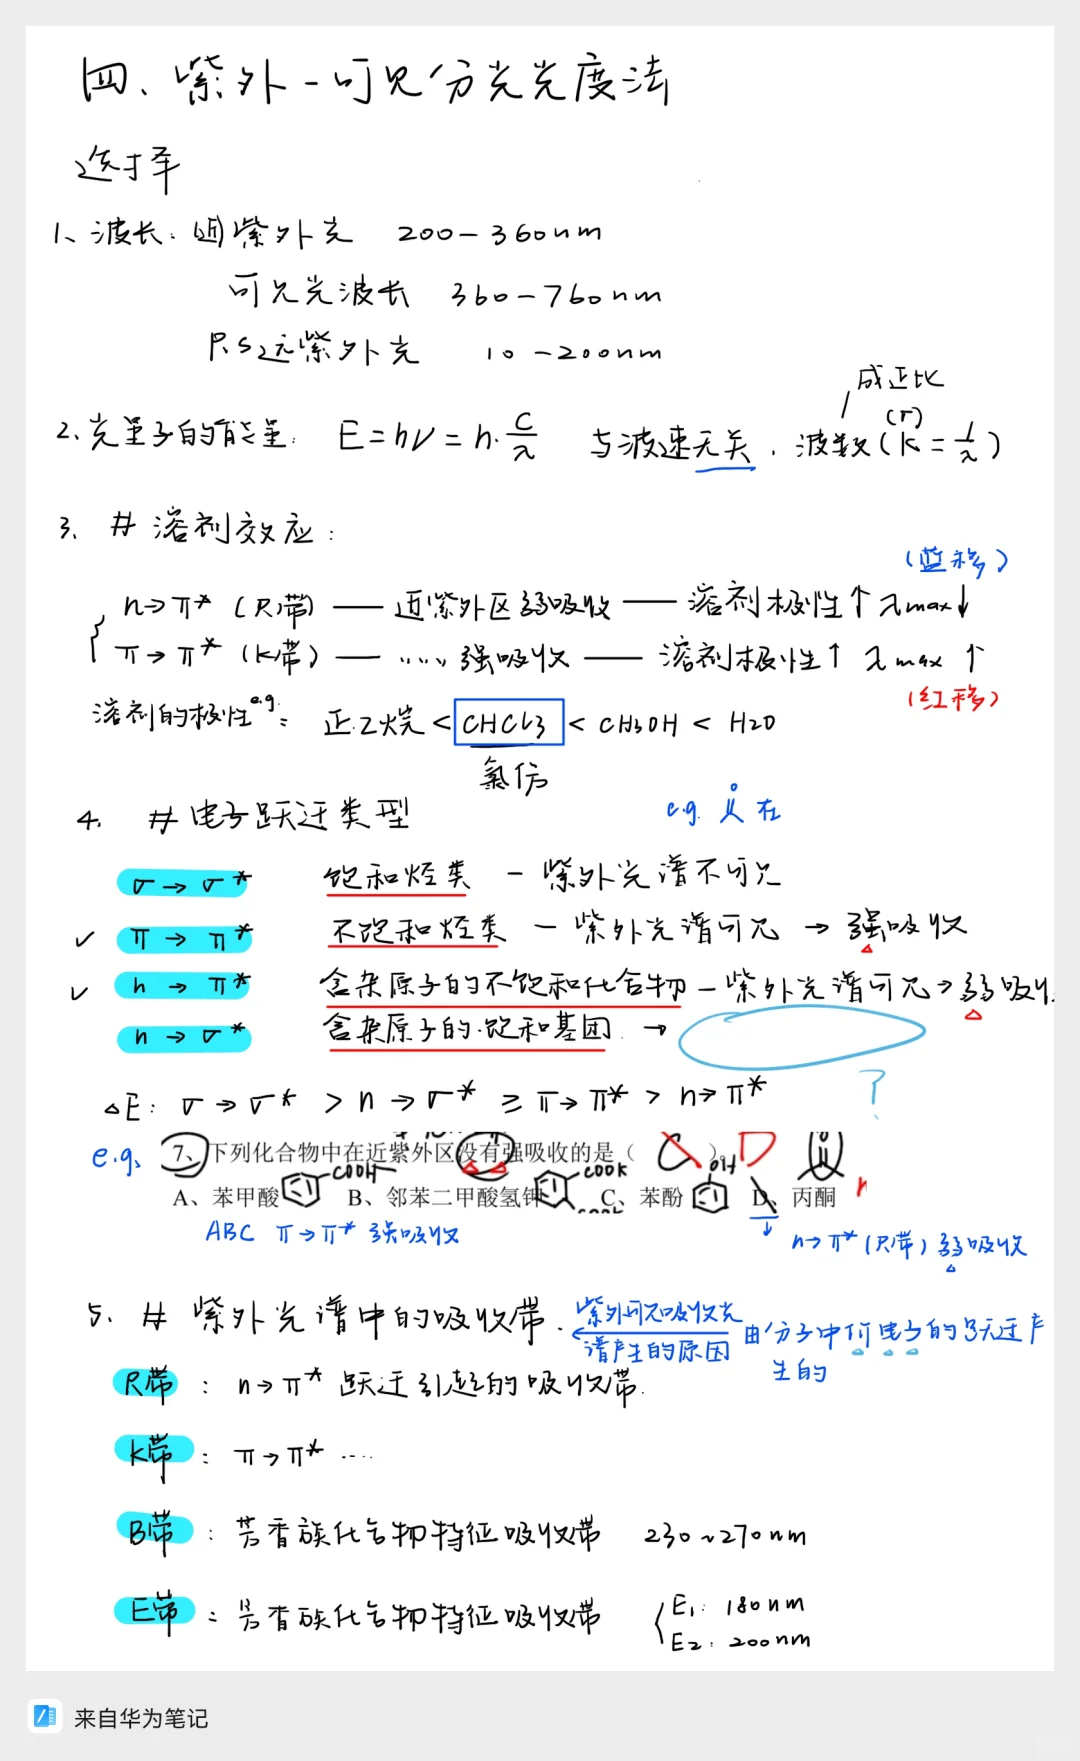 四、紫外-可见分光光度法
选择
1、波长:近紫外光 200-360nm
可见光波长 360-760nm
P.S远紫外光 10-200nm
成正比
2、光量子的能量: E=hν=h·c/λ 与波速无关、波数(K=1/λ)
3、# 溶剂效应:
(蓝移)
n→π* (R带) — 近紫外区弱吸收 — 溶剂极性↑ λmax↓
π→π* (K带) — ..... 强吸收 — 溶剂极性↑ λmax ↑
(红移)
溶剂的极性e.g: 正乙烷 < CHCl3 < CH3OH < H2O
氯仿
4. # 电子跃迁类型
e.g. 在
σ→σ* 饱和烃类 - 紫外光谱不可见
✓ π→π* 不饱和烃类 - 紫外光谱可见 → 强吸收
✓ n→π* 含杂原子的不饱和化合物 - 紫外光谱可见→弱吸收
n→σ* 含杂原子的饱和基团 →
?
△E: σ→σ* > n→σ* ≥ π→π* > n→π*
e.g. 7、下列化合物中在近紫外区没有强吸收的是( )。 D
A、苯甲酸 COOH B、邻苯二甲酸氢钾 COOK C、苯酚 OH D、丙酮
ABC π→π* 强吸收
n→π*(R带)弱吸收
5. # 紫外光谱中的吸收带.
紫外可见吸收光谱产生的原因 由分子中价电子的跃迁产生的
R带: n→π* 跃迁引起的吸收带.
K带: π→π* ....
B带: 芳香族化合物特征吸收带 230~270nm
E带: 芳香族化合物特征吸收带 E1: 180nm
E2: 200nm
来自华为笔记